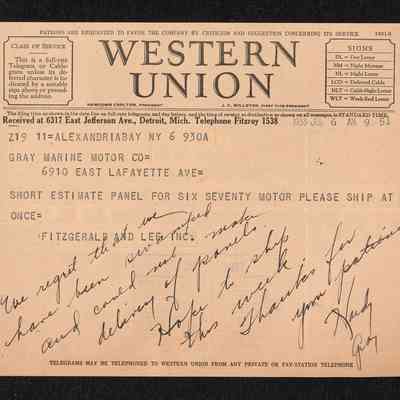 PATRONS ARE REQUESTED TO FAVOR THE COMPANY BY CRITICISM AND SUGGESTION CONCERNING ITS SERVICE
CLASS OF SERVICE
This is a full-rate Telegram or Cablegram unless its deferred character is indicated by a suitable sign above or preceding the address.
WESTERN UNION
NEWCOMB CARLTON, PRESIDENT
J. C. WILLEVER, FIRST VICE-PRESIDENT
SIGNS
DL = Day Letter
NM = Night Message
NL = Night Letter
LCO = Deferred Cable
NLT = Cable Night Letter
WLT = Week-End Letter
Received at 6317 East Jefferson Ave., Detroit, Mich. Telephone Fitzroy 1538
STANDARD TIME
6 AM 9 51
Z19 11=ALEXANDRIABAY NY 6 930A
GRAY MARINE MOTOR CO=
6910 EAST LAFAYETTE AVE=
SHORT ESTIMATE PANEL FOR SIX SEVENTY MOTOR PLEASE SHIP AT
ONCE=
FITZGERALD AND LEE INC.
We regret that we
have been swamped
and could not make
delivery of panels.
Hope to ship
this week
Thanks for
your patience
Gray
TELEGRAMS MAY BE TELEPHONED TO WESTERN UNION FROM ANY PRIVATE OR PAY-STATION TELEPHONE